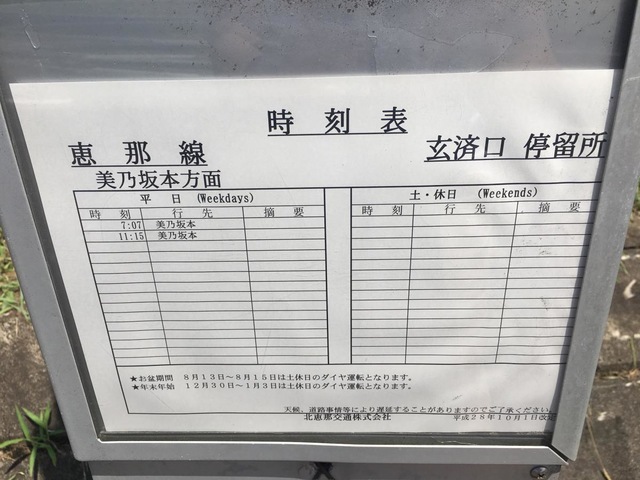 時 刻 表
恵 那 線
玄済口 停留所
美乃坂本方面
平 日 (Weekdays)
土・休日 (Weekends)
時 刻 行 先 摘 要
時 刻 行 先 摘 要
7:07 美乃坂本
11:15 美乃坂本
★お盆期間 8月13日～8月15日は土休日のダイヤ運転となります。
★年末年始 12月30日～1月3日は土休日のダイヤ運転となります。
天候、道路事情等により遅延することがありますのでご了承ください。
北恵那交通株式会社
平成28年10月1日改正